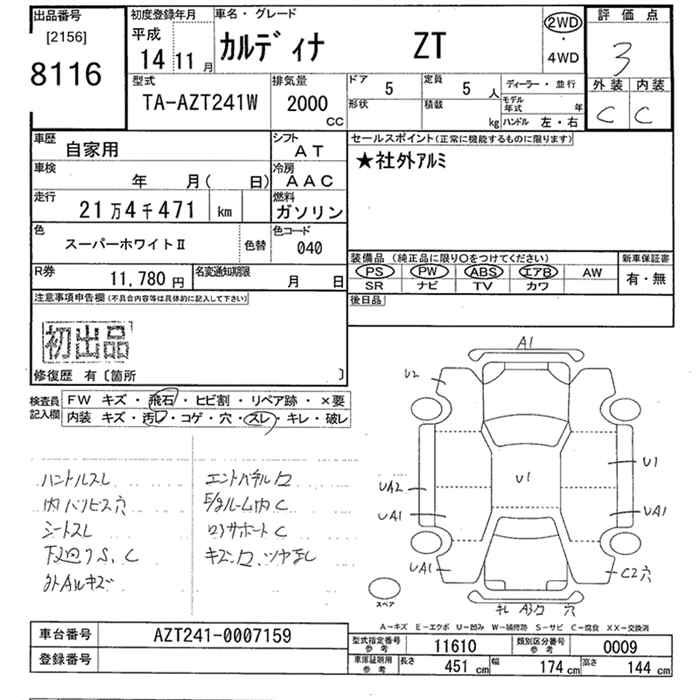 出品番号
[2156]
8116
初度登録年月
平成
14 11 月
車名・グレード
カルディナ ZT
2WD
・
4WD
評価点
3
外装 内装
C C
型式
TA-AZT241W
排気量
2000 CC
ドア 5
定員 5 人
形状
積載 kg
ディーラー・並行
モデル年式 年
ハンドル 左・右
車歴 自家用
シフト AT
車検 年 月( 日)
冷房 AAC
走行 21万4千471 km
燃料 ガソリン
色 スーパーホワイトⅡ
色替
色コード 040
R券 11,780 円
名変通知期限 月 日
セールスポイント(正常に機能するものに限ります)
★社外アルミ
装備品(純正品に限り○をつけてください)
新車保証書
PS PW ABS エアB AW
SR ナビ TV カワ
有・無
後日品
注意事項申告欄(不具合内容等は具体的に記入して下さい)
初出品
修復歴 有〔箇所 〕
検査員記入欄
FW キズ・飛石・ヒビ割・リペア跡・×要
内装 キズ・汚レ・コゲ・穴・スレ・キレ・破レ
ハンドルスレ
内ハリビス穴
シートスレ
下廻りS、C
外Aルキズ
エンドパネル
ルーム内C
サポートC
キズ、凹、ツヤなし
A1
U2
U1
U1
UA2
UA1
UA1
UA1
C2穴
スペア
キレ A3凹 穴
A−キズ E−エクボ U−凹み W−補修跡 S−サビ C−腐食 XX−交換済
車台番号 AZT241-0007159
登録番号
型式指定番号参考 11610
類別区分番号参考 0009
車庫証明用参考 長さ 451 cm 幅 174 cm 高さ 144 cm